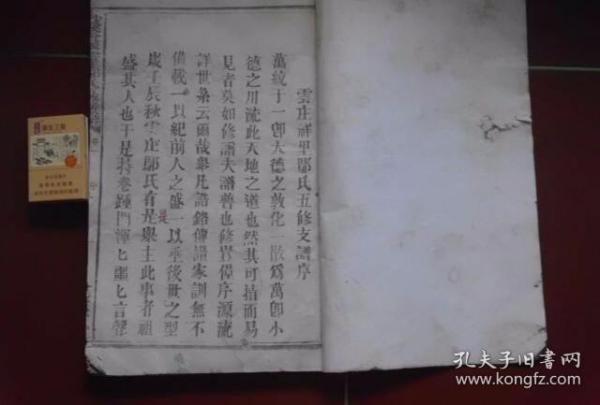 雲庄祥里鄢氏五修支譜序
萬紋于一卽大德之敦化一散爲萬卽小
德之川流此天地之道也然其可指而易
見者莫如修譜夫譜普也修豈偉序源流
詳世系云爾哉舉凡誥銘傳讃家訓無不
備載一以紀前人之盛一以垂後世之型
歲壬辰秋雲庄鄢氏有是舉主此事者祖
盛其人也于是持卷踵門渾匕繼匕言聲
是
孔夫子旧书网
www.kongfz.com